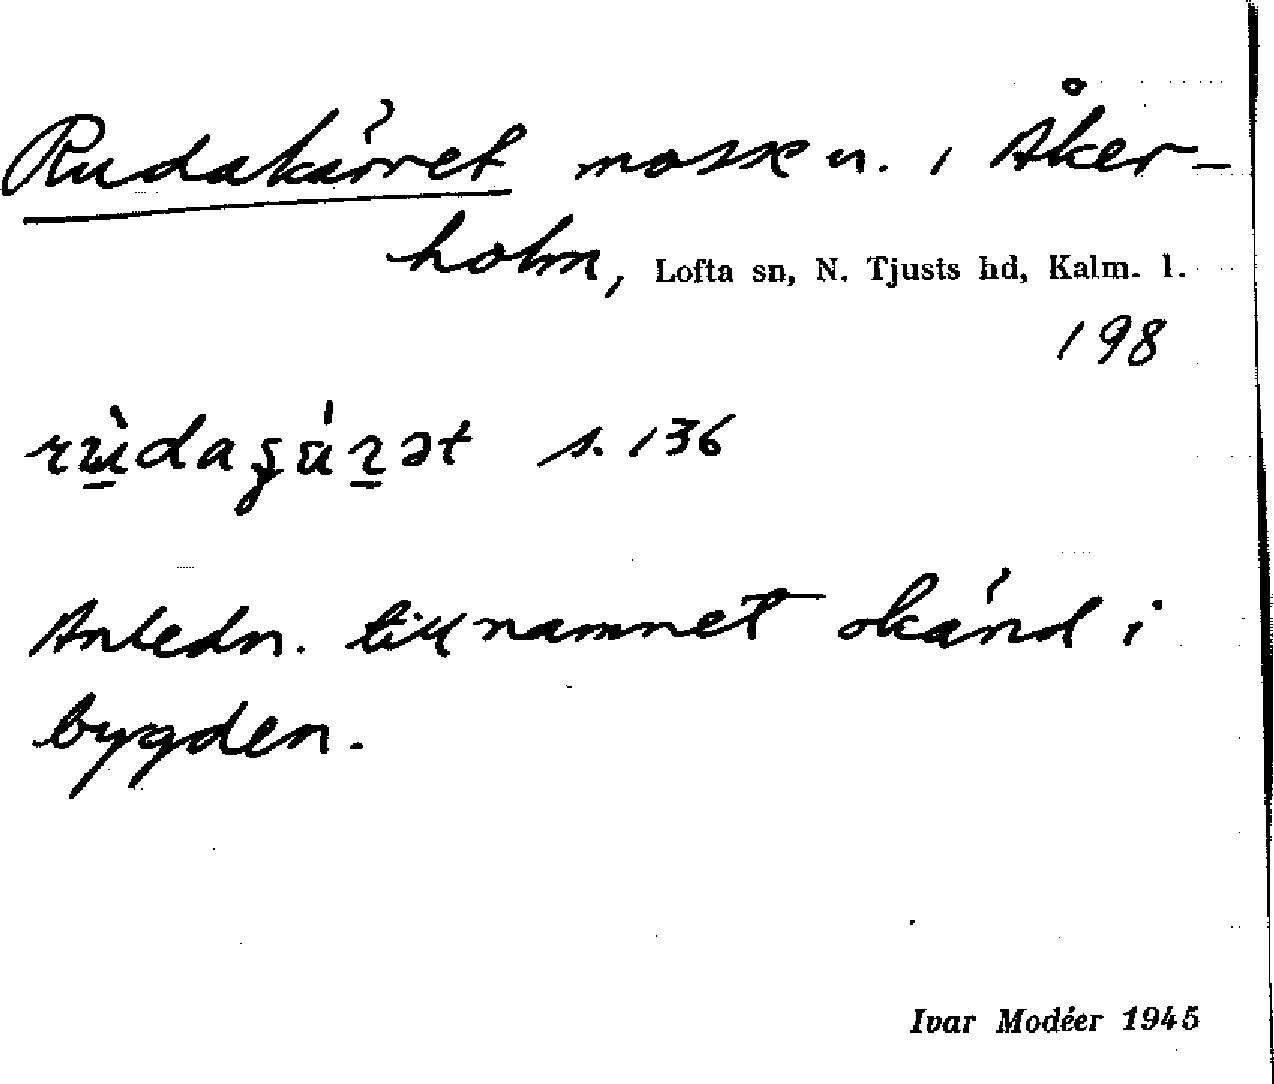 Rudakärret mosse n. i Åker-
holm, Lofta sn, N. Tjusts hd, Kalm. l.
198
s. 136
Anledn. till namnet okänd i
bygden.
Ivar Modéer 1945